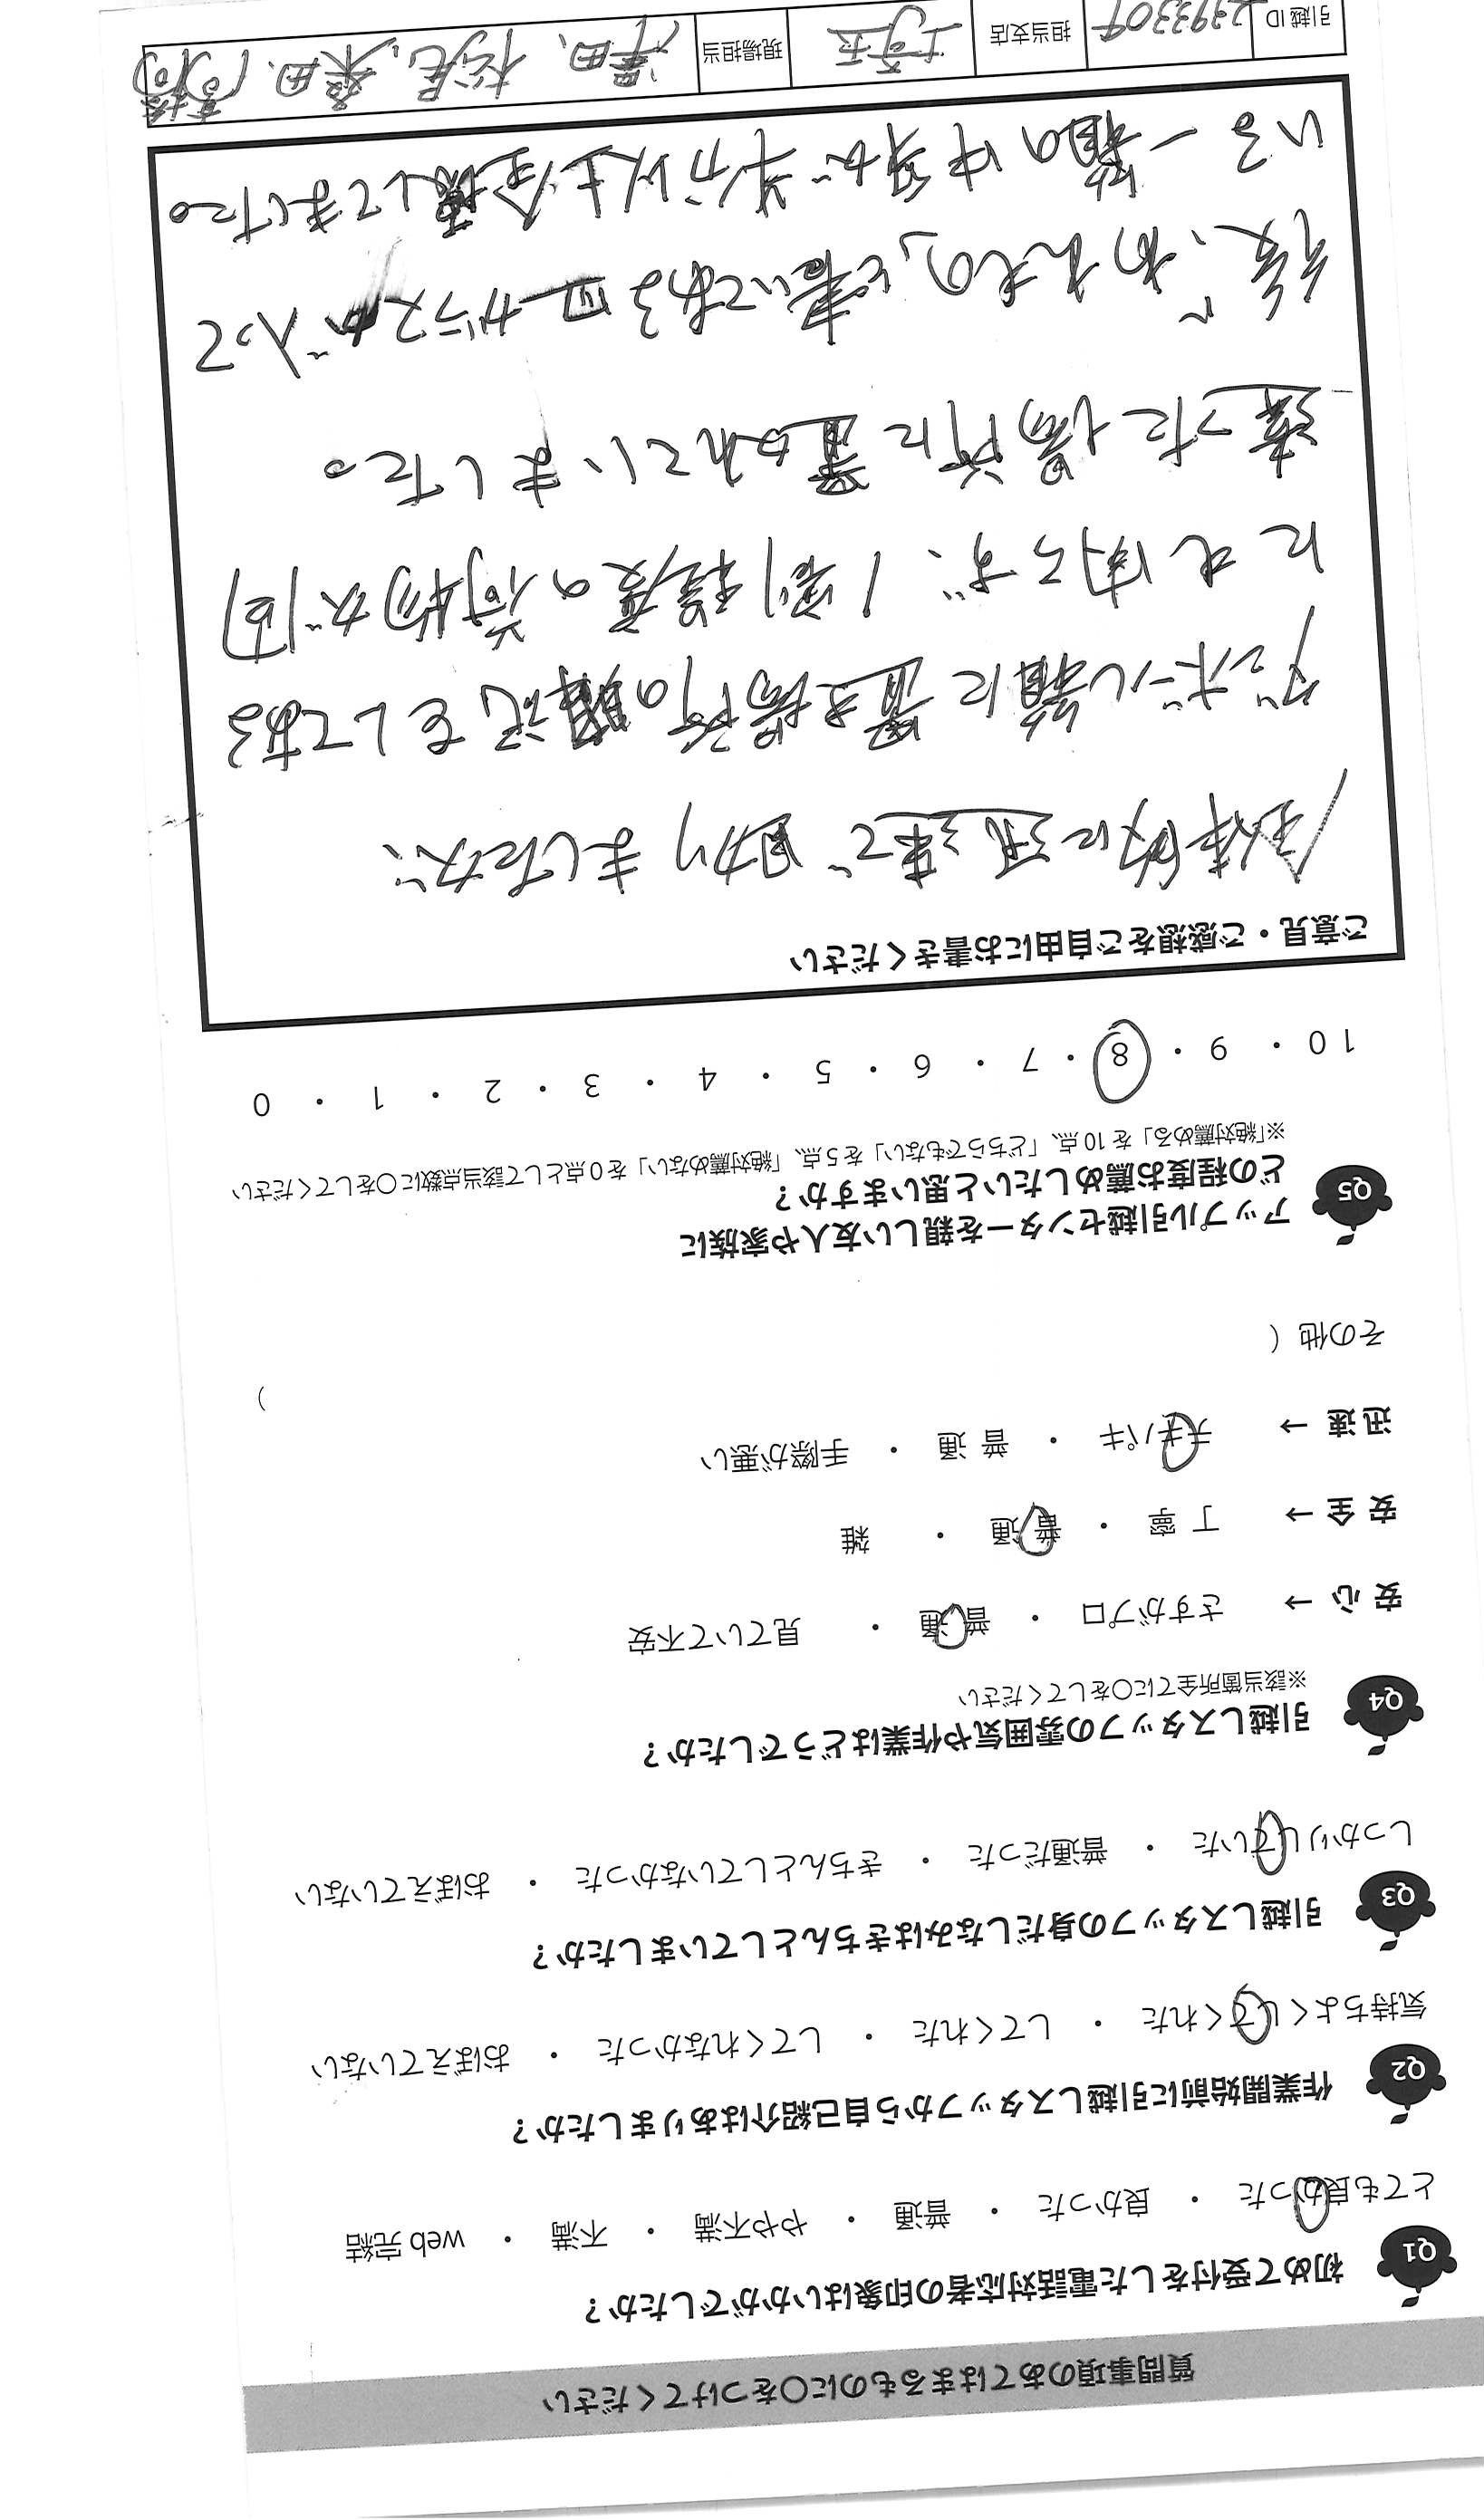 質問事項のあてはまるものに〇をつけてください
Q1 初めて受付をした電話対応者の印象はいかがでしたか？
とても良かった ・ 良かった ・ 普通 ・ やや不満 ・ 不満 ・ web完結
Q2 作業開始前に引越しスタッフから自己紹介はありましたか？
気持ちよくしてくれた ・ してくれた ・ してくれなかった ・ おぼえていない
Q3 引越しスタッフの身だしなみはきちんとしていましたか？
しっかりしていた ・ 普通だった ・ きちんとしていなかった ・ おぼえていない
Q4 引越しスタッフの雰囲気や作業はどうでしたか？
※該当箇所全てに〇をしてください
安心 → さすがプロ ・ 普通 ・ 見ていて不安
安全 → 丁寧 ・ 普通 ・ 雑
迅速 → テキパキ ・ 普通 ・ 手際が悪い
その他 （ ）
Q5 アップル引越センターを親しい友人や家族に
どの程度お薦めしたいと思いますか？
※「絶対薦める」を10点、「どちらでもない」を5点、「絶対薦めない」を0点として該当点数に〇をしてください
10 ・ 9 ・ 8 ・ 7 ・ 6 ・ 5 ・ 4 ・ 3 ・ 2 ・ 1 ・ 0
ご意見・ご感想をご自由にお書きください
全体的に迅速で助かりましたが、
ダンボール箱に置き場所の明記をしてある
にも関らず、1割程度の荷物が
違った場所に置かれていました。
後、"われもの"と書いてある皿、ガラスが入って
いる一箱の中身が半分以上全壊してました。
引越ID 担当支店 埼玉 現場担当 澤田、松尾、桑田、高橋